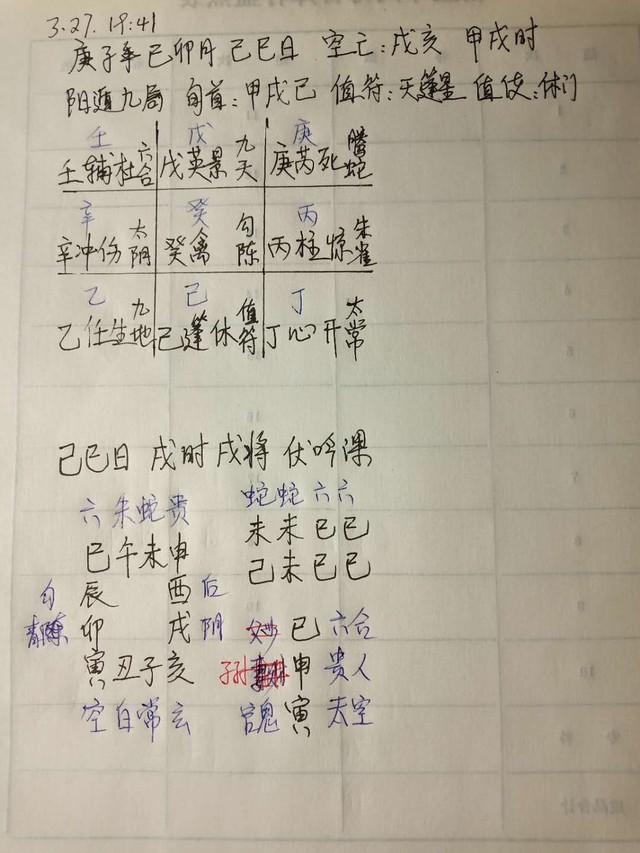 3.27. 19:41
庚子年己卯月 己巳日 空亡:戌亥 甲戌时
阴遁九局 旬首:甲戌己 值符:天蓬星 值使:休门
壬 戊 庚
壬辅杜六合 戊英景九天 庚芮死腾蛇
辛 癸 丙
辛冲伤太阴 癸禽勾陈 丙柱惊朱雀
乙 己 丁
乙任生九地 己蓬休值符 丁心开太常
己巳日 戌时 戌将 伏吟课
六朱蛇贵 蛇蛇六六
巳午未申 未未巳巳
己未巳巳
勾辰 酉后
青 卯 戌阴 巳六合
寅丑子亥 子孙 申贵人
空白常玄 官鬼寅太空